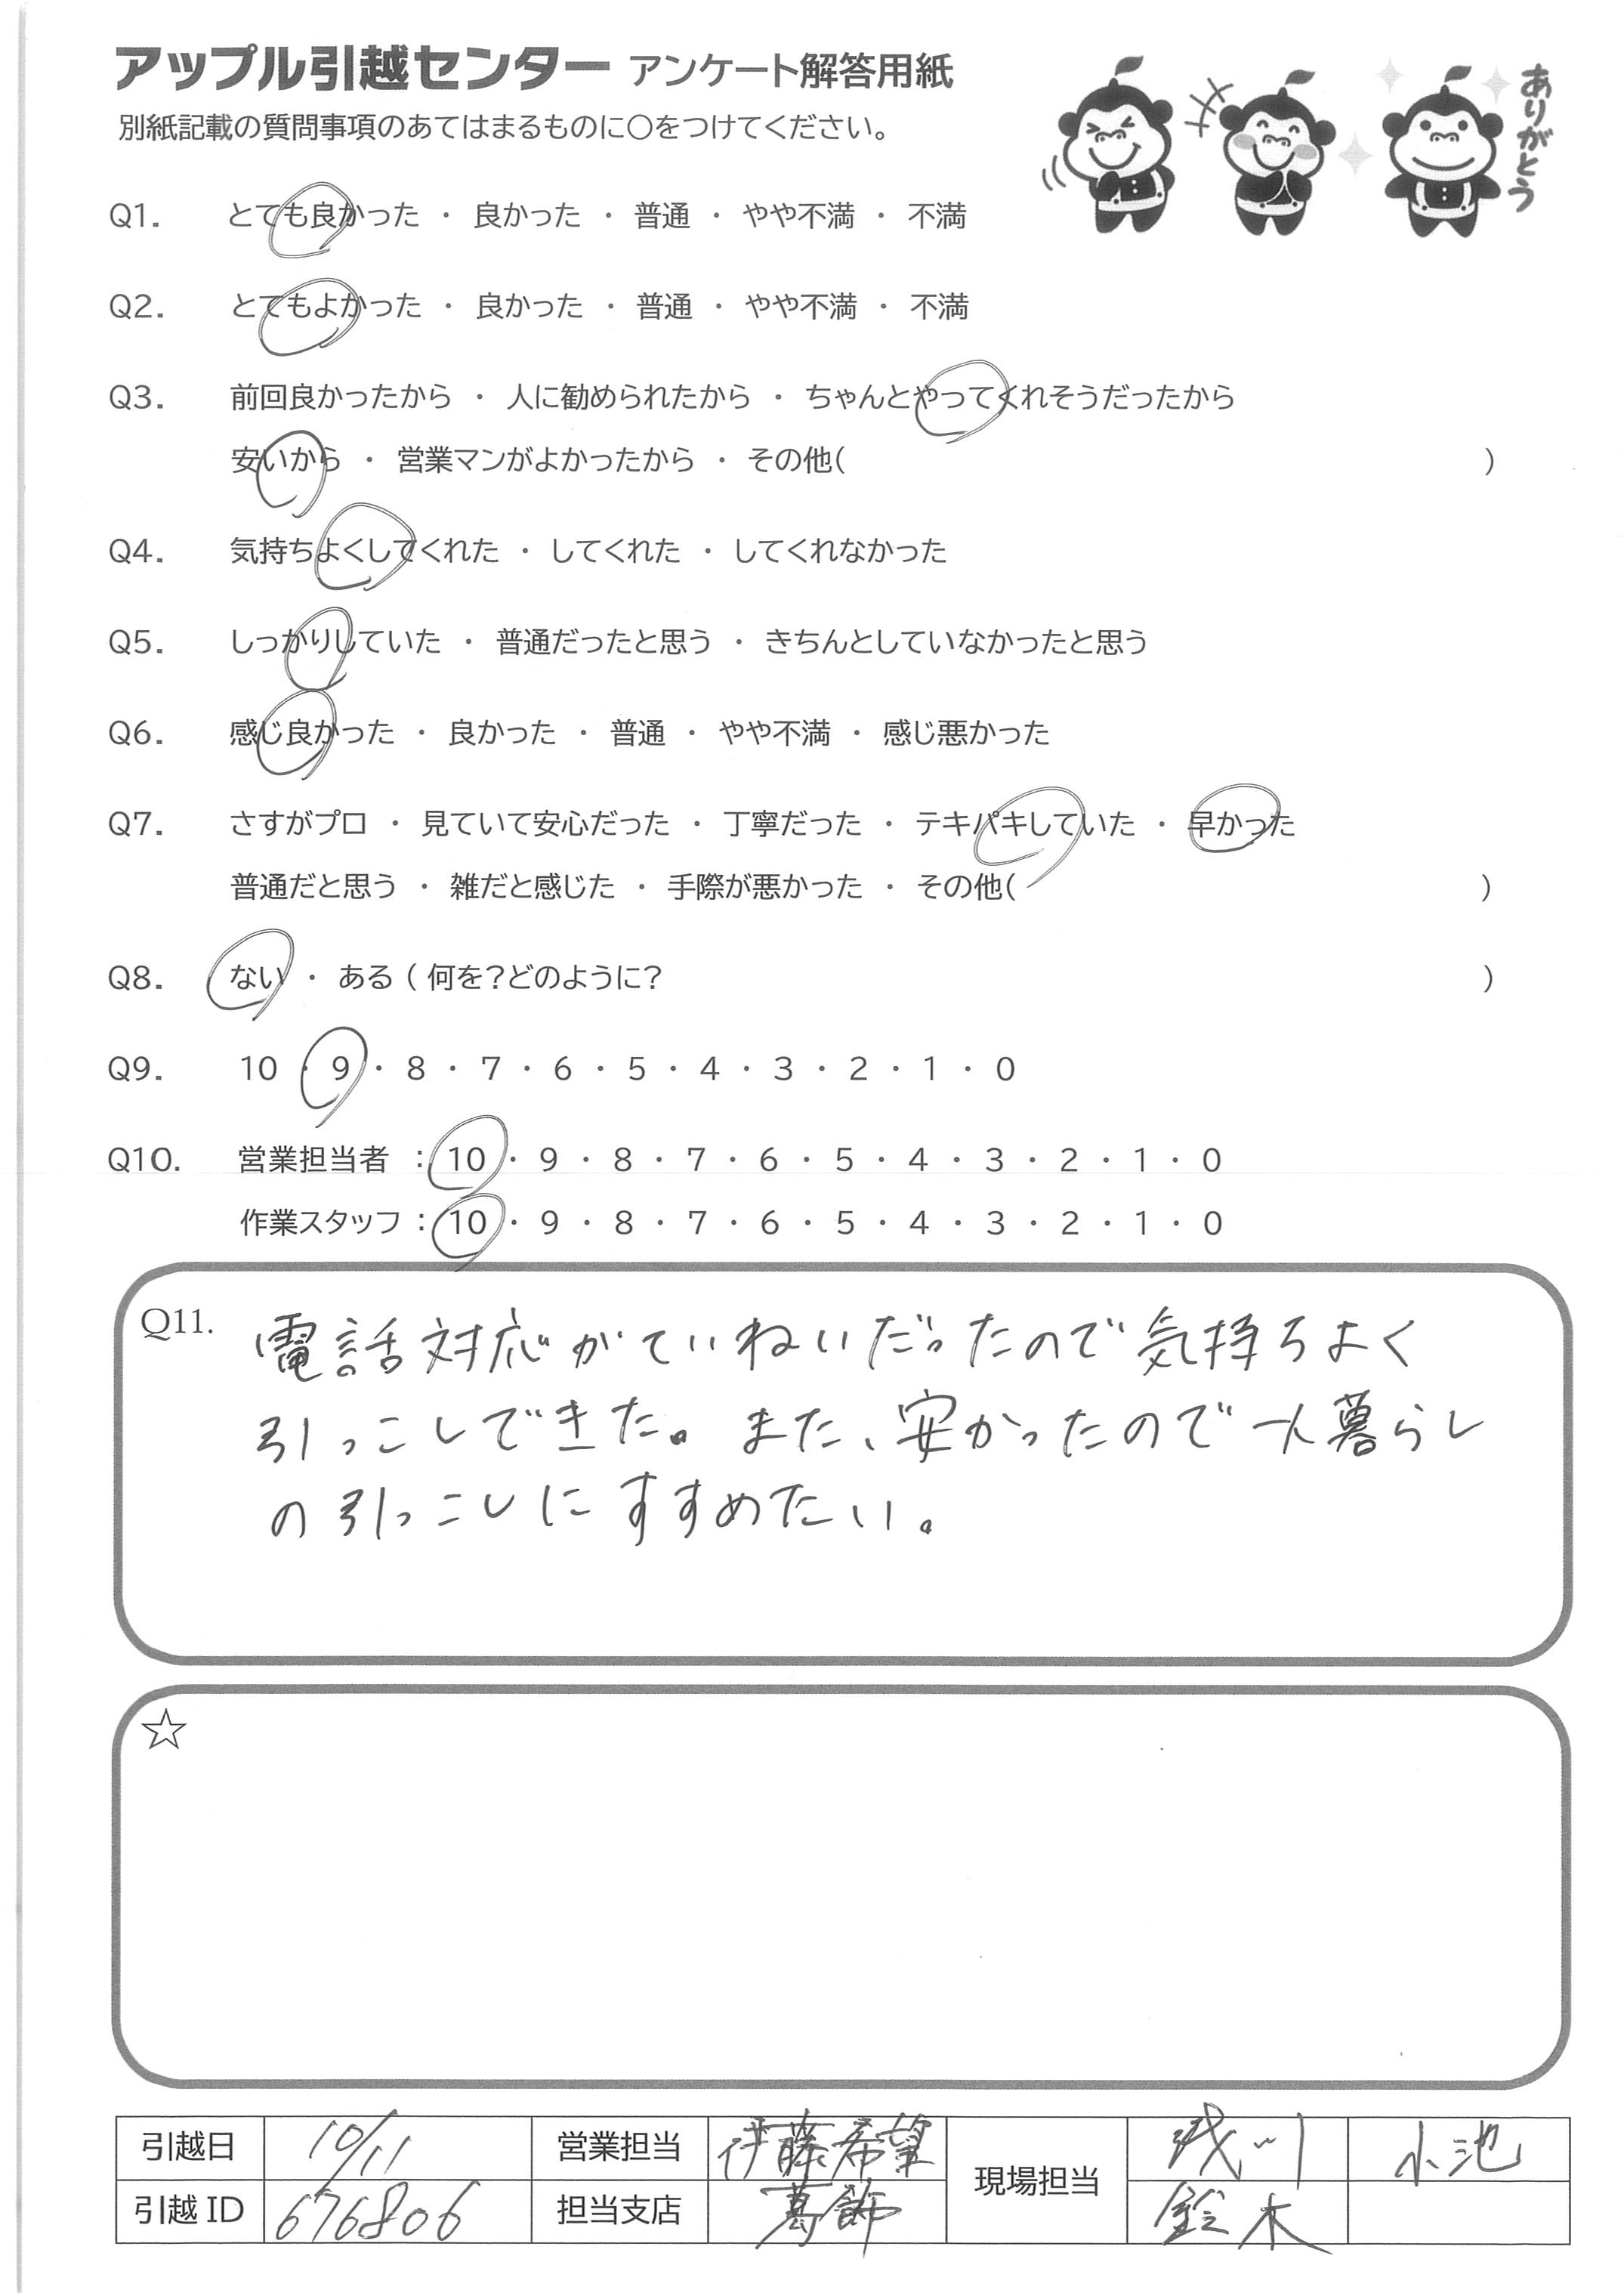 アップル引越センター アンケート解答用紙
別紙記載の質問事項のあてはまるものに○をつけてください。
ありがとう
Q1. とても良かった ・ 良かった ・ 普通 ・ やや不満 ・ 不満
Q2. とてもよかった ・ 良かった ・ 普通 ・ やや不満 ・ 不満
Q3. 前回良かったから ・ 人に勧められたから ・ ちゃんとやってくれそうだったから
安いから ・ 営業マンがよかったから ・ その他( )
Q4. 気持ちよくしてくれた ・ してくれた ・ してくれなかった
Q5. しっかりしていた ・ 普通だったと思う ・ きちんとしていなかったと思う
Q6. 感じ良かった ・ 良かった ・ 普通 ・ やや不満 ・ 感じ悪かった
Q7. さすがプロ ・ 見ていて安心だった ・ 丁寧だった ・ テキパキしていた ・ 早かった
普通だと思う ・ 雑だと感じた ・ 手際が悪かった ・ その他( )
Q8. ない ・ ある ( 何を?どのように? )
Q9. 10 ・ 9 ・ 8 ・ 7 ・ 6 ・ 5 ・ 4 ・ 3 ・ 2 ・ 1 ・ 0
Q10. 営業担当者 : 10 ・ 9 ・ 8 ・ 7 ・ 6 ・ 5 ・ 4 ・ 3 ・ 2 ・ 1 ・ 0
作業スタッフ : 10 ・ 9 ・ 8 ・ 7 ・ 6 ・ 5 ・ 4 ・ 3 ・ 2 ・ 1 ・ 0
Q11. 電話対応がていねいだったので気持ちよく
引っこしできた。また、安かったので一人暮らし
の引っこしにすすめたい。
☆
引越日 10/11 営業担当 伊藤希望 現場担当 小池
引越ID 676806 担当支店 葛飾 鈴木